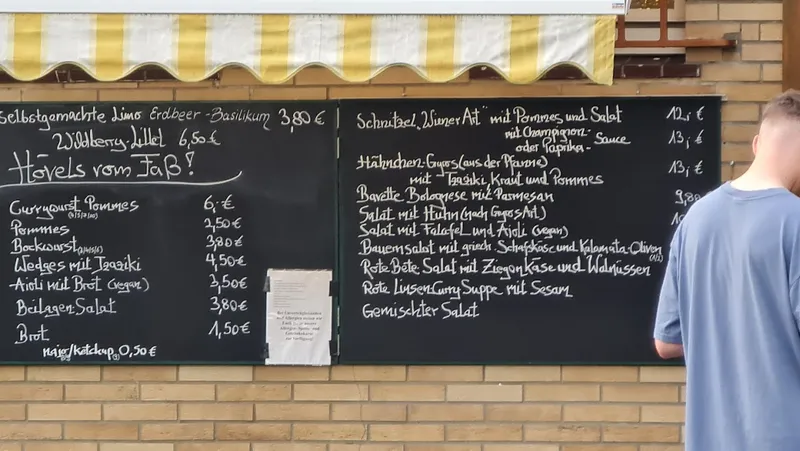 Selbstgemachte Limo Erdbeer-Basilikum 3,80€
Wildberry-Lillet 6,50€
Hövels vom Faß!
Currywurst Pommes 6,-€
Pommes 2,50€
Bockwurst 3,80€
Wedges mit Tzaziki 4,50€
Aioli mit Brot (vegan) 3,50€
Beilagen Salat 3,80€
Brot 1,50€
Majo/Ketchup 0,50€
Schnitzel „Wiener Art" mit Pommes und Salat 12,-€
mit Champignon- oder Paprika- Sauce 13,-€
Hähnchen-Gyros (aus der Pfanne) 13,-€
mit Tzaziki, Kraut und Pommes
Bavette Bolognese mit Parmesan 9,80
Salat mit Huhn (nach Gyros Art)
Salat mit Falafel und Ajoli (vegan)
Bauernsalat mit griech. Schafskäse und Kalamata-Oliven
Rote Bete Salat mit Ziegenkäse und Walnüssen
Rote Linsen Curry Suppe mit Sesam
Gemischter Salat